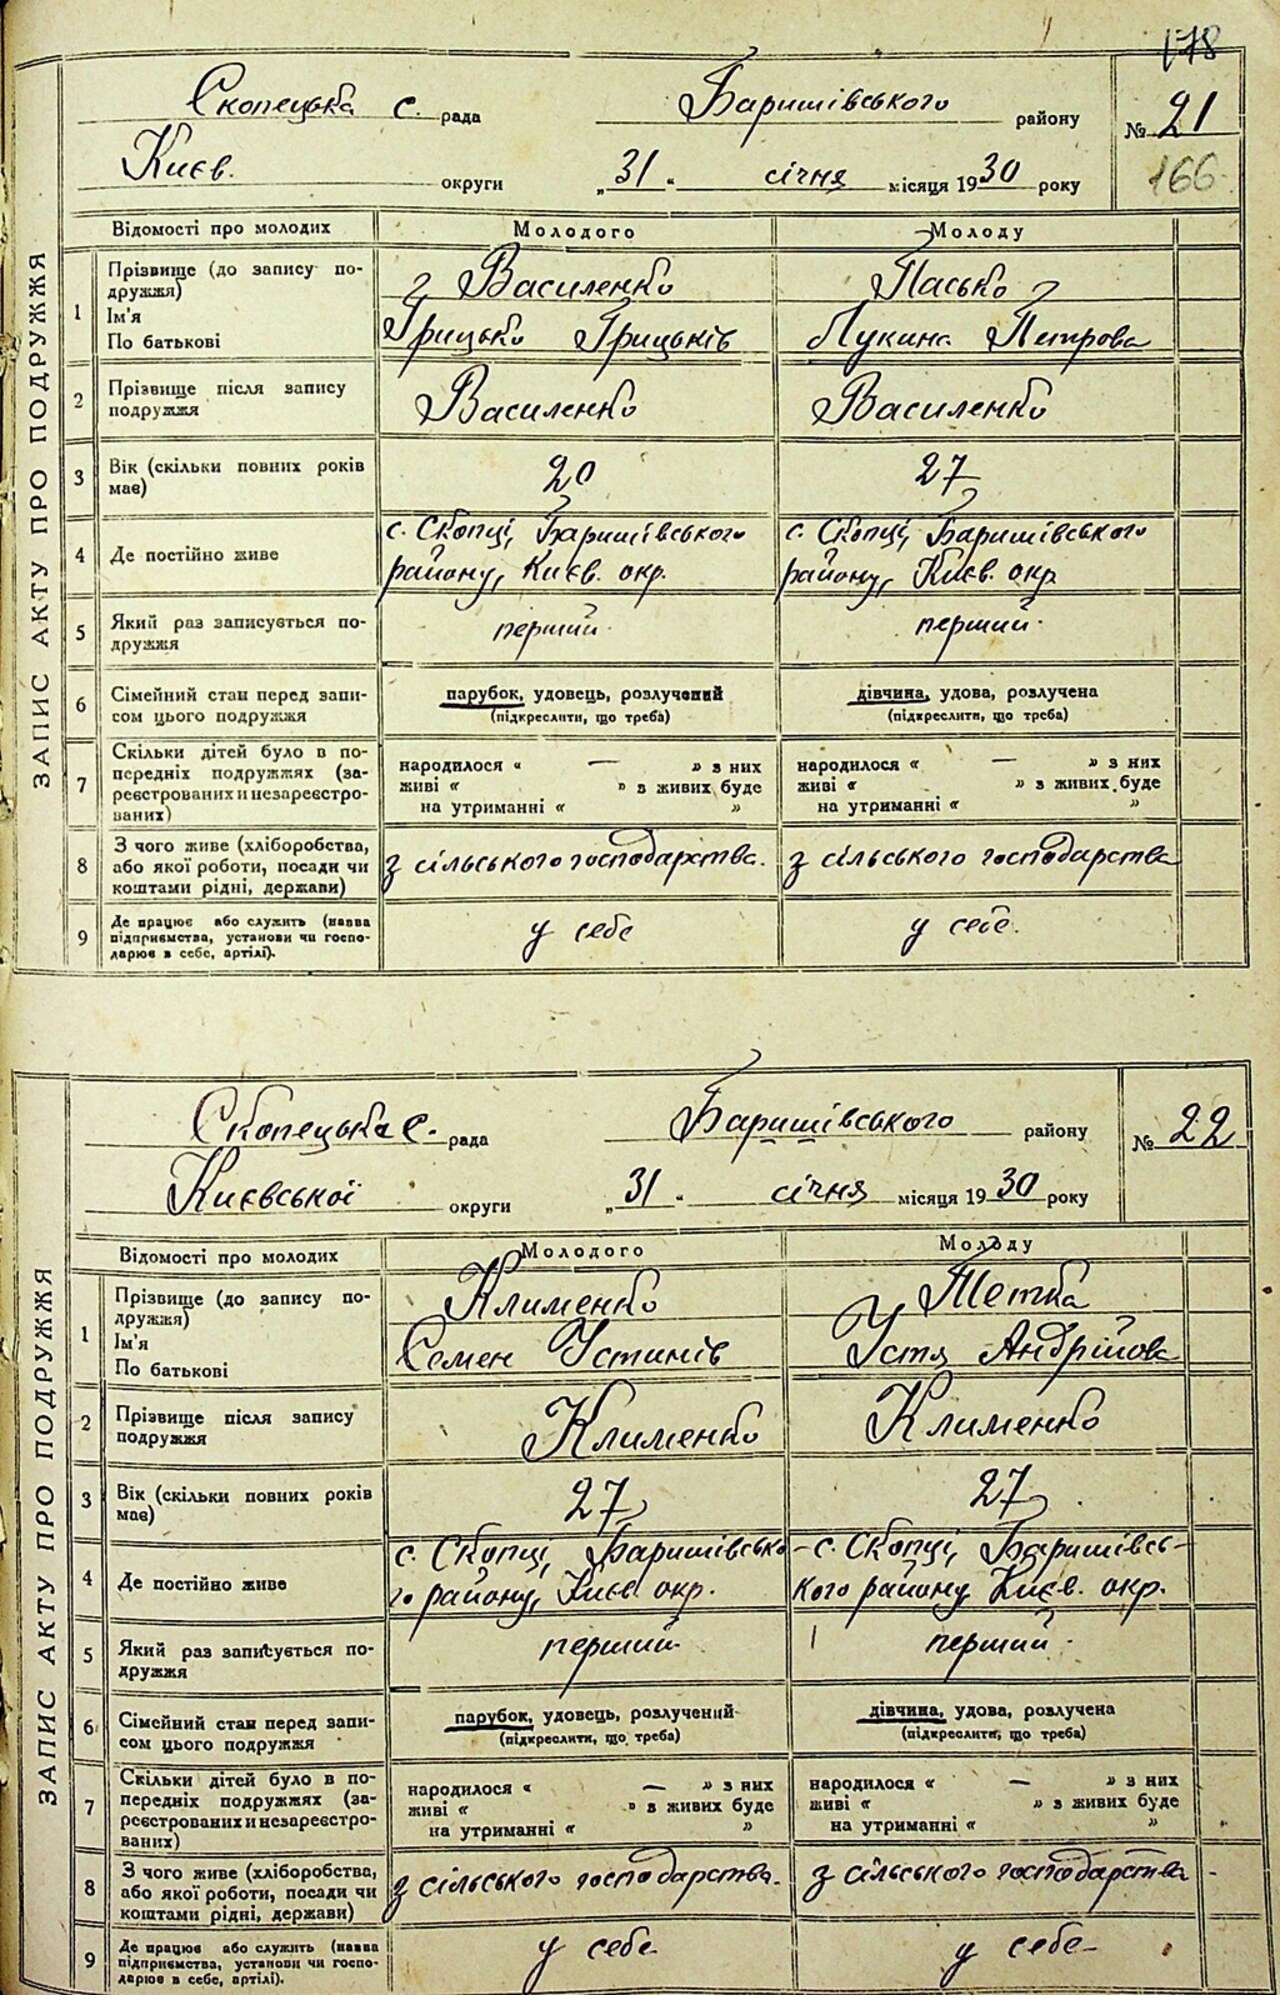 178
Скопецька с. рада Баришівського району № 21
Києв. округи „31“ січня місяця 1930 року 166
ЗАПИС АКТУ ПРО ПОДРУЖЖЯ
Відомості про молодих Молодого Молоду
1 Прізвище (до запису подружжя) Василенко Пасько
Ім'я
По батькові Грицько Грицьків Лукина Петрова
2 Прізвище після запису подружжя Василенко Василенко
3 Вік (скільки повних років має) 20 27
4 Де постійно живе с. Скопці, Баришівського с. Скопці, Баришівського
району, Києв. окр. району, Києв. окр
5 Який раз записується подружжя перший перший
6 Сімейний стан перед записом цього подружжя парубок, удовець, розлучений дівчина, удова, розлучена
(підкреслити, що треба) (підкреслити, що треба)
7 Скільки дітей було в попередніх подружжях (зареєстрованих и незареєстрованих) народилося « — » з них народилося « — » з них
живі « » з живих буде живі « » з живих буде
на утриманні « » на утриманні « »
8 З чого живе (хліборобства, або якої роботи, посади чи коштами рідні, держави) з сільського господарства. з сільського господарства
9 Де працює або служить (назва підприємства, установи чи господарює в себе, артілі). у себе у себе.
Скопецька с. рада Баришівського району № 22
Києвської округи „31“ січня місяця 1930 року
ЗАПИС АКТУ ПРО ПОДРУЖЖЯ
Відомості про молодих Молодого Молоду
1 Прізвище (до запису подружжя) Клименко Тетка
Ім'я
По батькові Семен Устинів Устя Андрійова
2 Прізвище після запису подружжя Клименко Клименко
3 Вік (скільки повних років має) 27 27
4 Де постійно живе с. Скопці, Баришівсько- с. Скопці, Баришівсь-
го району, Києв. окр. кого району Києв. окр.
5 Який раз записується подружжя перший перший
6 Сімейний стан перед записом цього подружжя парубок, удовець, розлучений дівчина, удова, розлучена
(підкреслити, що треба) (підкреслити, що треба)
7 Скільки дітей було в попередніх подружжях (зареєстрованих и незареєстрованих) народилося « — » з них народилося « — » з них
живі « » з живих буде живі « » з живих буде
на утриманні « » на утриманні « »
8 З чого живе (хліборобства, або якої роботи, посади чи коштами рідні, держави) з сільського господарства. з сільського господарства
9 Де працює або служить (назва підприємства, установи чи господарює в себе, артілі). у себе у себе